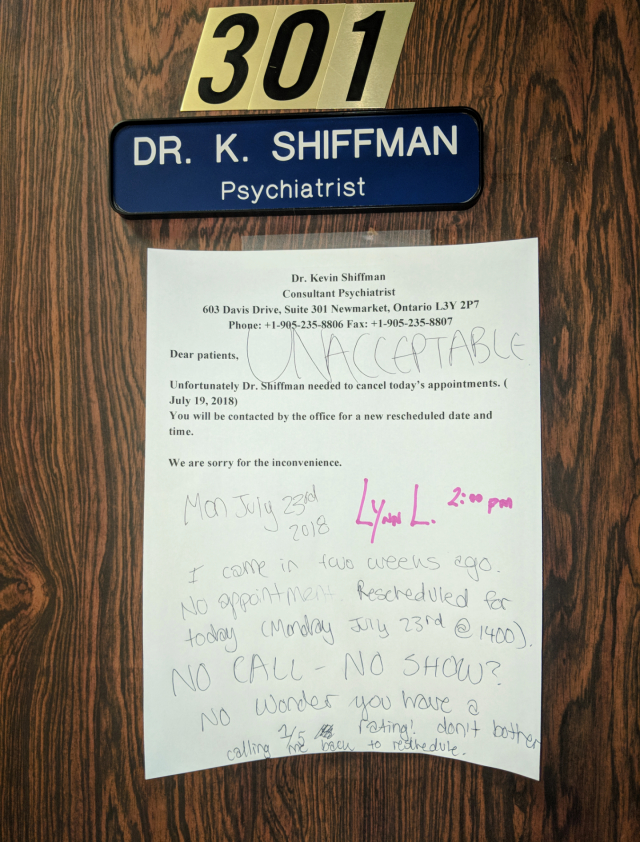 301
DR. K. SHIFFMAN
Psychiatrist
Dr. Kevin Shiffman
Consultant Psychiatrist
603 Davis Drive, Suite 301 Newmarket, Ontario L3Y 2P7
Phone: +1-905-235-8806 Fax: +1-905-235-8807
UNACCEPTABLE
Dear patients,
Unfortunately Dr. Shiffman needed to cancel today's appointments. (
July 19, 2018)
You will be contacted by the office for a new rescheduled date and
time.
We are sorry for the inconvenience.
Mon July 23rd
2018
Lynn L. 2:00 pm
I came in two weeks ago.
No appointment. Rescheduled for
today (Monday July 23rd @ 1400).
NO CALL - NO SHOW?
No wonder you have a
1/5 rating! don't bother
calling me back to reschedule.